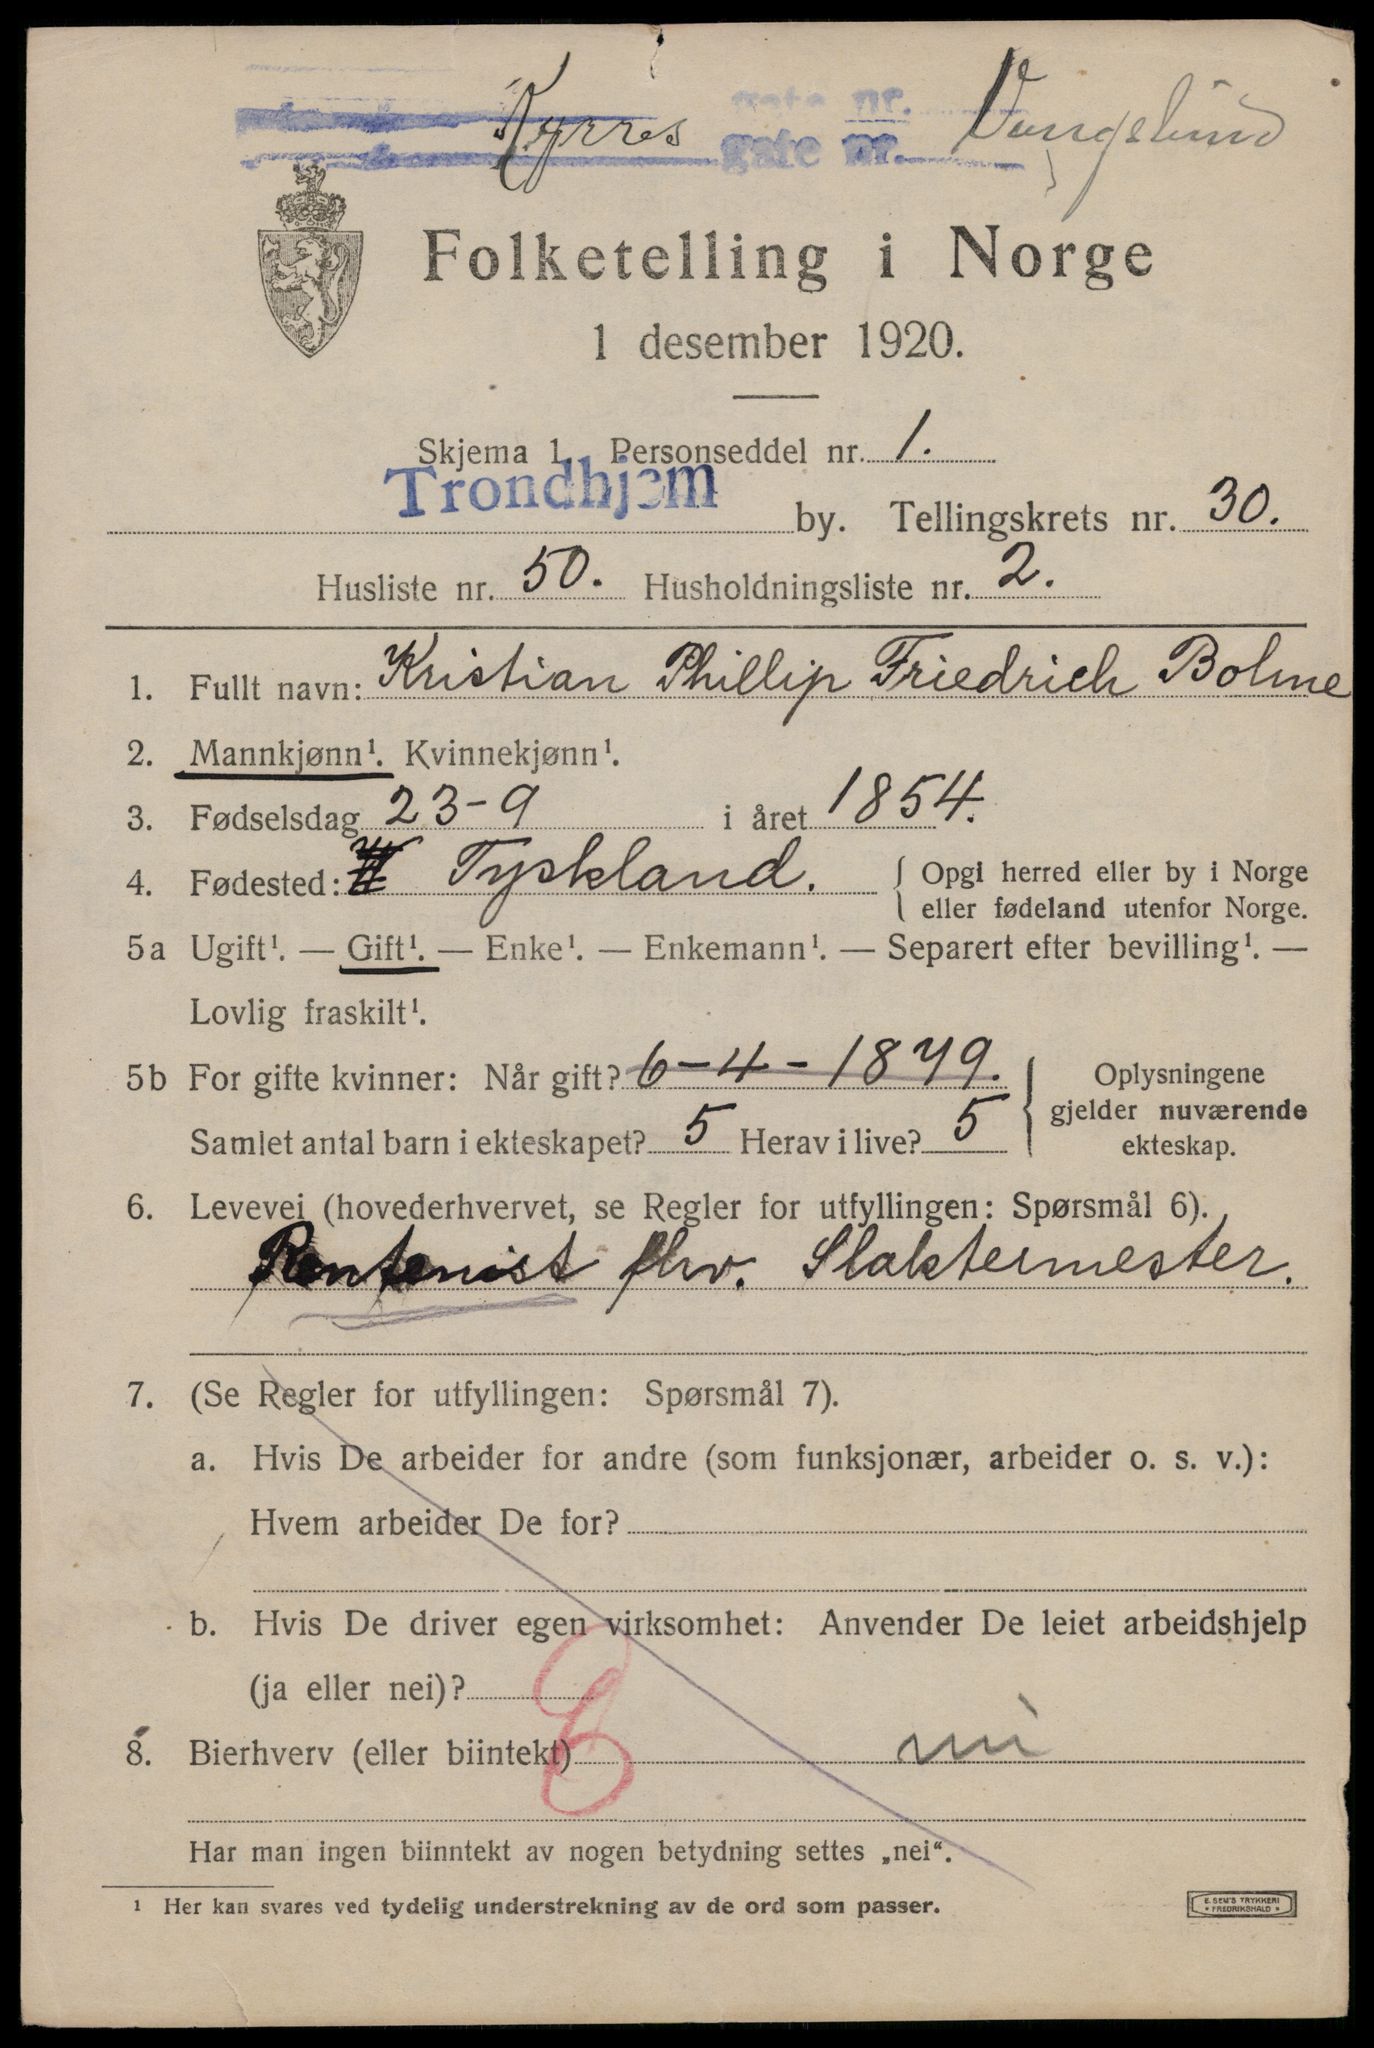 gate nr.
Kyrres gate nr. Vangslund
Folketelling i Norge
1 desember 1920.
Skjema 1. Personseddel nr. 1.
Trondhjem by. Tellingskrets nr. 30.
Husliste nr. 50. Husholdningsliste nr. 2.
1. Fullt navn: Kristian Phillip Friedrich Bohme
2. Mannkjønn¹. Kvinnekjønn¹.
3. Fødselsdag 23-9 i året 1854.
4. Fødested: Tyskland. { Opgi herred eller by i Norge
eller fødeland utenfor Norge.
5a Ugift¹. — Gift¹. — Enke¹. — Enkemann¹. — Separert efter bevilling¹. —
Lovlig fraskilt¹.
5b For gifte kvinner: Når gift? 6-4-1879. { Oplysningene
gjelder nuværende
Samlet antal barn i ekteskapet? 5 Herav i live? 5 ekteskap.
6. Levevei (hovederhvervet, se Regler for utfyllingen: Spørsmål 6).
Rentenist fhv. Slaktermester.
7. (Se Regler for utfyllingen: Spørsmål 7).
a. Hvis De arbeider for andre (som funksjonær, arbeider o. s. v.):
Hvem arbeider De for?
b. Hvis De driver egen virksomhet: Anvender De leiet arbeidshjelp
(ja eller nei)?
8. Bierhverv (eller biintekt) nei
Har man ingen biinntekt av nogen betydning settes „nei“.
¹ Her kan svares ved tydelig understrekning av de ord som passer.
E. SEM'S TRYKKERI
• FREDRIKSHALD •